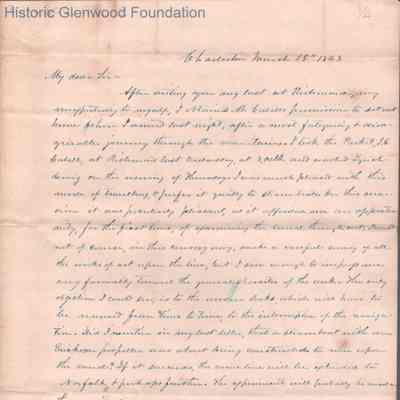 Historic Glenwood Foundation
Charleston March 15th 1843
My dear Sir—
After writing you my last at Richmond, very
unexpectedly to myself, I obtained Mr permission to set out
home where I arrived last night, after a most fatiguing & disa-
greeable journey through the I took the Packet, J C
Cabell, at Richmond last Wednesday, at and reached Lynch-
burg on the morning of Thursday. I was much pleased with this
mode of travelling & prefer it greatly to or. On this occa-
sion it was peculiarly pleasant, as it afforded me an opportu-
nity, for the first time, of examining the canal throughout. I could
not of course, in this cursory way, make a careful survey of all
the works of art upon the line, but I saw enough to impress me
very favorably toward the general character of the work. The only
objection I could see, is to the wooden locks which will have to
be renewed from time to time, to the interruption of the naviga-
tion. Did I mention in my last letter, that a steamboat with an
Ericksson propeller was about being constructed to run upon
the canal? If it succeeds, the same line will be extended to
Norfolk & perhaps further. The experiment will probably be made